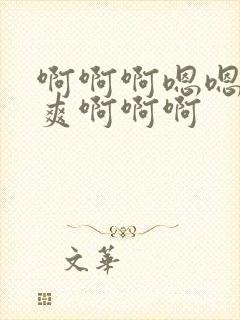 啊啊啊嗯嗯
爽啊啊啊
文華